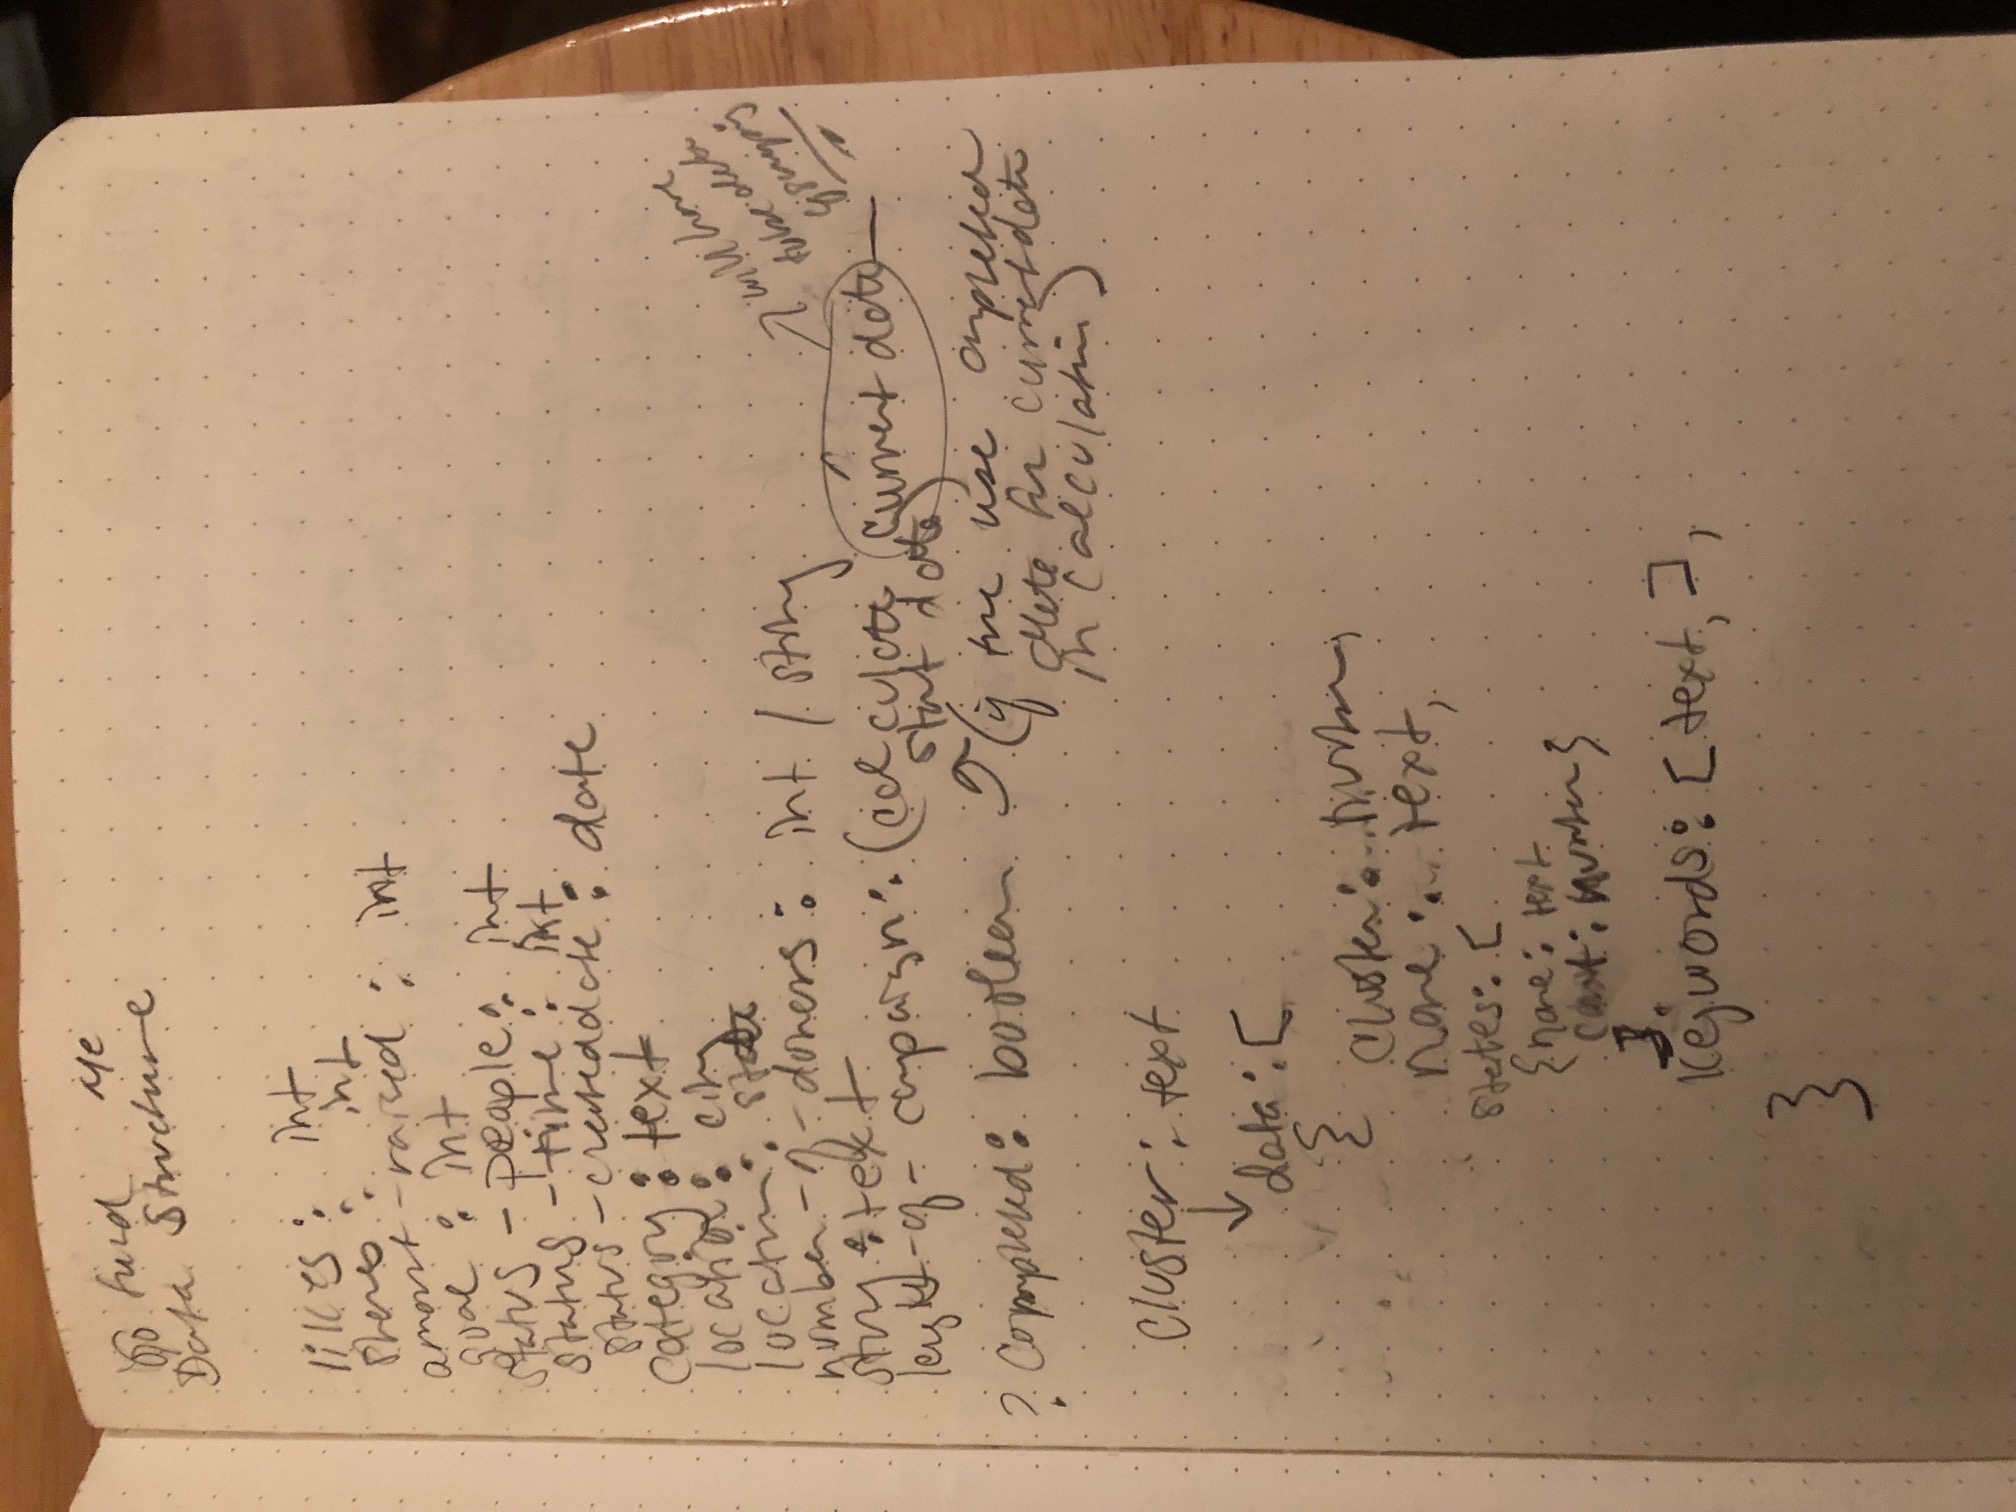 Go fund Me
Data Structure
likes: int
shares: int
amount-raised: int
goal: int
status-people: int
status-time: int
status-createddate: date
category: text
location: city
location: state
number-of-donors: int / string
story: text
length-of-campaign: (calculate current date —
start date)
will have
to be date
of scraping
? Completed: boolean (if true use completed
date for current date
in calculation)
Cluster: text
data: [
{
cluster: number,
name: text,
states: [
{name: text
count: number}
],
Keywords: [text, ],
}